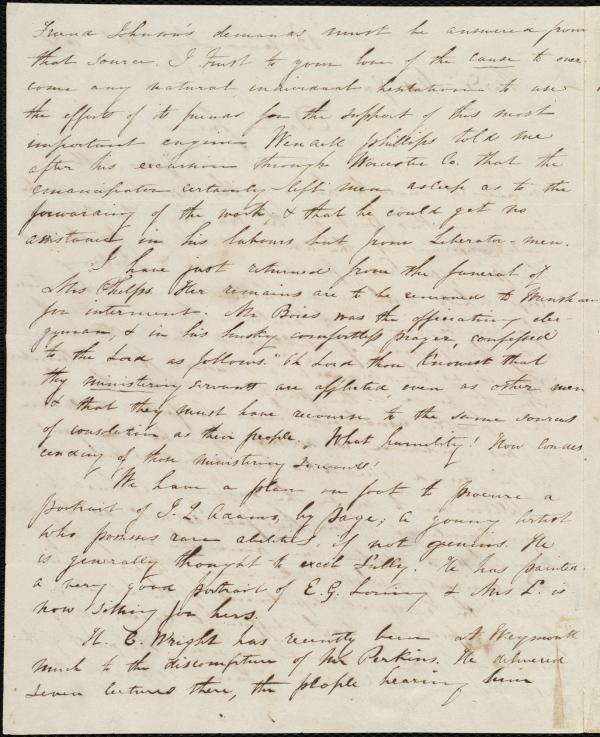 Friend Johnson's demands must be answered from
that source. I trust to your love of the cause to over
come any natural, individual hesitation to use
the efforts of its friends for the support of this most
important engine. Wendell Phillips told me
after his excursion through Worcester Co. that the
emancipator certainly left men asleep as to the
forwarding of the work, & that he could get no
assistance, in his labours, but from Liberator-men.
I have just returned from the funeral of
Mrs Phelps. Her remains are to be removed to
for interment. Mr Boies was the officiating cler-
gyman, & in his husky comfortless prayer, confessed
to the Lord as follows. "Oh Lord thou knowest that
thy ministering servants are afflicted, even as other men
& that they must have recourse to the same sources
of consolation as their people. What humility! How condes
cending of those ministering servants!
We have a plan on foot to procure a
portrait of J. Q. Adams, by Page; a young artist
who possesses rare abilities, if not genius. He
is generally thought to excel Lilly. He has painted
a very good portrait of E. G. Loring & Mrs L. is
now sitting for hers.
H. C. Wright has recently been at Weymouth
much to the discomfiture of Mr Perkins. He delivered
seven lectures there, the people hearing him